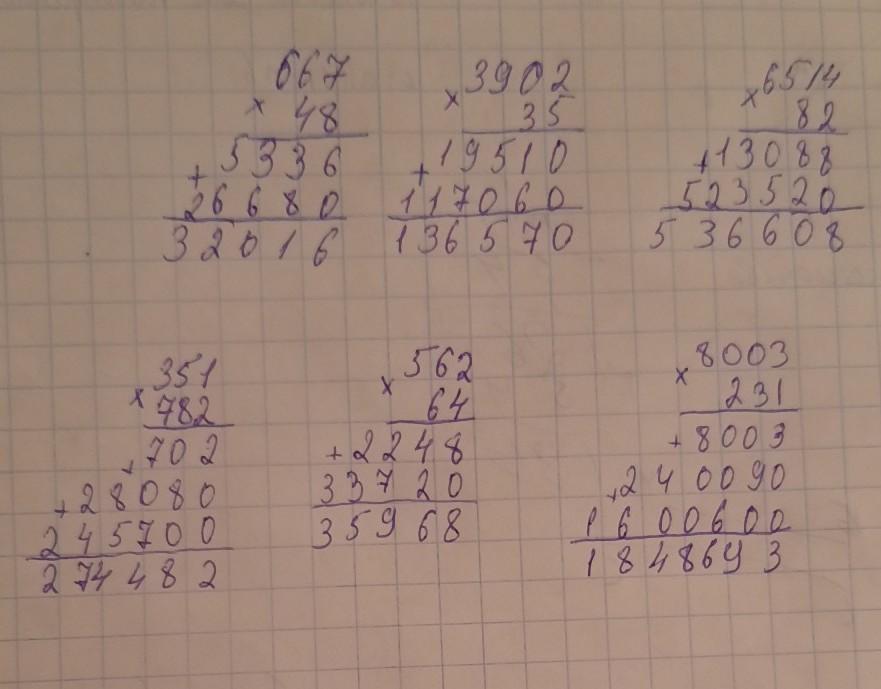 667
× 48
5336
+
26680
32016
3902
× 35
19510
+
117060
136570
6514
× 82
+13088
523520
536608
351
× 782
702
+
+28080
245700
274482
562
× 64
+2248
33720
35968
8003
× 231
+8003
+240090
1600600
1848693